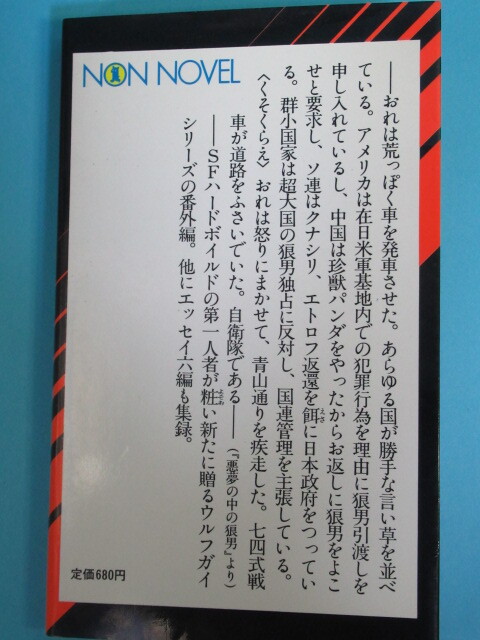 NON NOVEL
――おれは荒っぽく車を発車させた。あらゆる国が勝手な言い草を並べ
ている。アメリカは在日米軍基地内での犯罪行為を理由に狼男引渡しを
申し入れているし、中国は珍獣パンダをやったからお返しに狼男をよこ
せと要求し、ソ連はクナシリ、エトロフ返還を餌に日本政府をつってい
る。群小国家は超大国の狼男独占に反対し、国連管理を主張している。
〈くそくらえ〉おれは怒りにまかせて、青山通りを疾走した。七四式戦
車が道路をふさいでいた。自衛隊である――(『悪夢の中の狼男』より)
――SFハードボイルドの第一人者が粧い新たに贈るウルフガイ
シリーズの番外編。他にエッセイ六編も集録。
定価680円